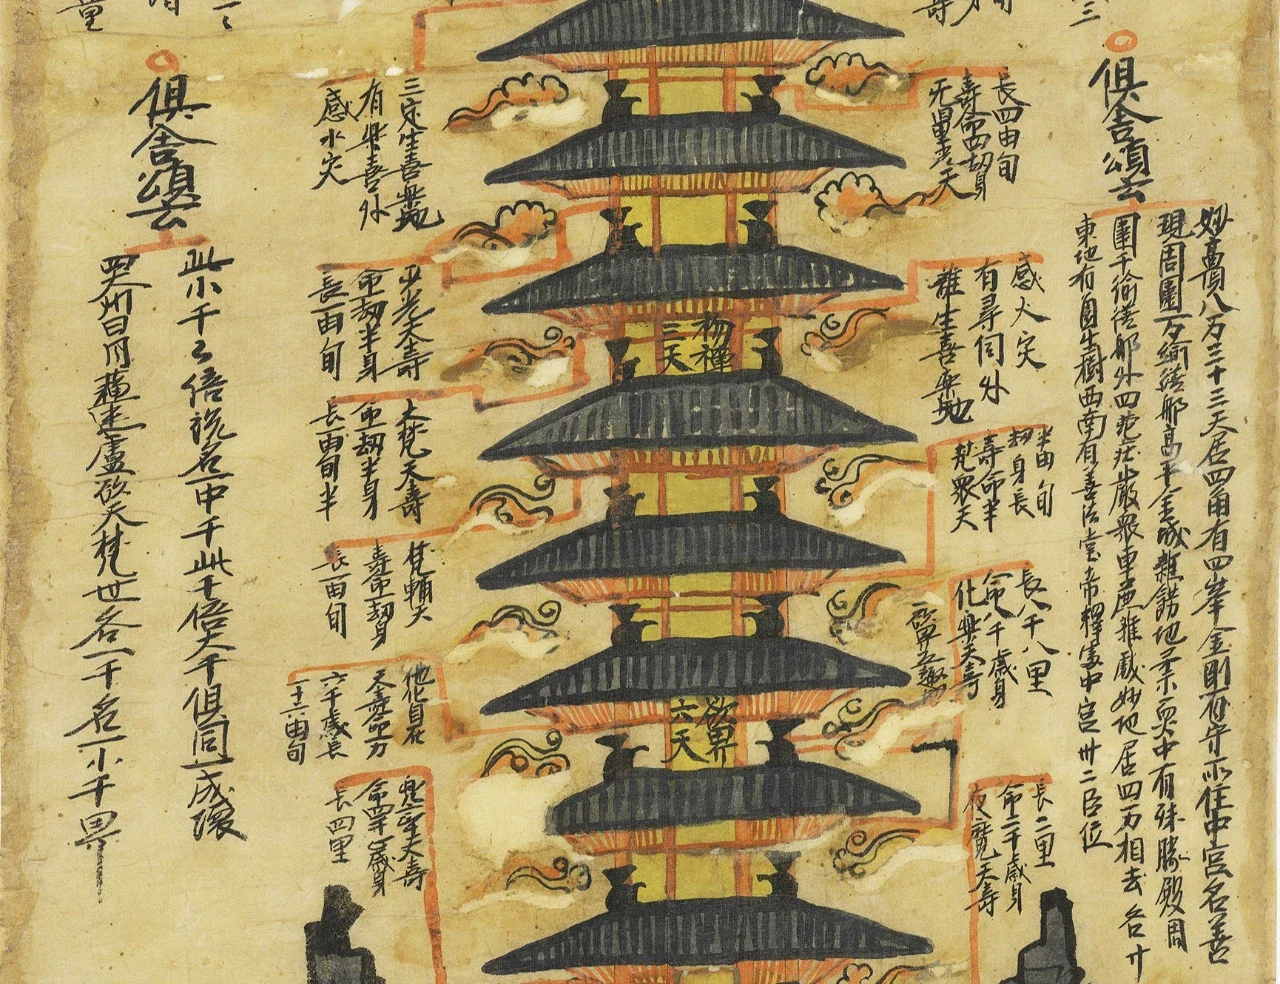 俱舍頌云
妙高頂八万三十三天居四角有四峯金剛有守所住中宮名善
現周圍万踰繕那高半金城雜飾地柔耎中有殊勝殿周
圍千踰繕那外四苑莊嚴眾車麁雜戲妙地居四方相去各廿
東北有圓生樹西南有善法堂帝釋處中宮卅二臣位
長四由旬
壽命四劫身
无量光天
感火灾
有尋伺外
離生喜樂地
半由旬
劫身長
壽命半
梵眾天
長八千八里
命八千歲身
化樂天壽
欲界五趣地
長二里
命二千歲身
夜摩天壽
初禪
三天
欲界
六天
定生喜樂地
有樂喜外
感水灾
少光天壽
命劫半身
長二由旬
大梵天壽
命劫半身
長一由旬半
梵輔天
壽命一劫身
長一由旬
他化自在
天壽命万
六千歲長
十二由旬
兜率天壽
命四千歲身
長四里
俱舍頌云
此小千千倍說名一中千此千倍大千俱同一成壞
四大洲日月蘓迷盧欲天梵世各一千名一小千界